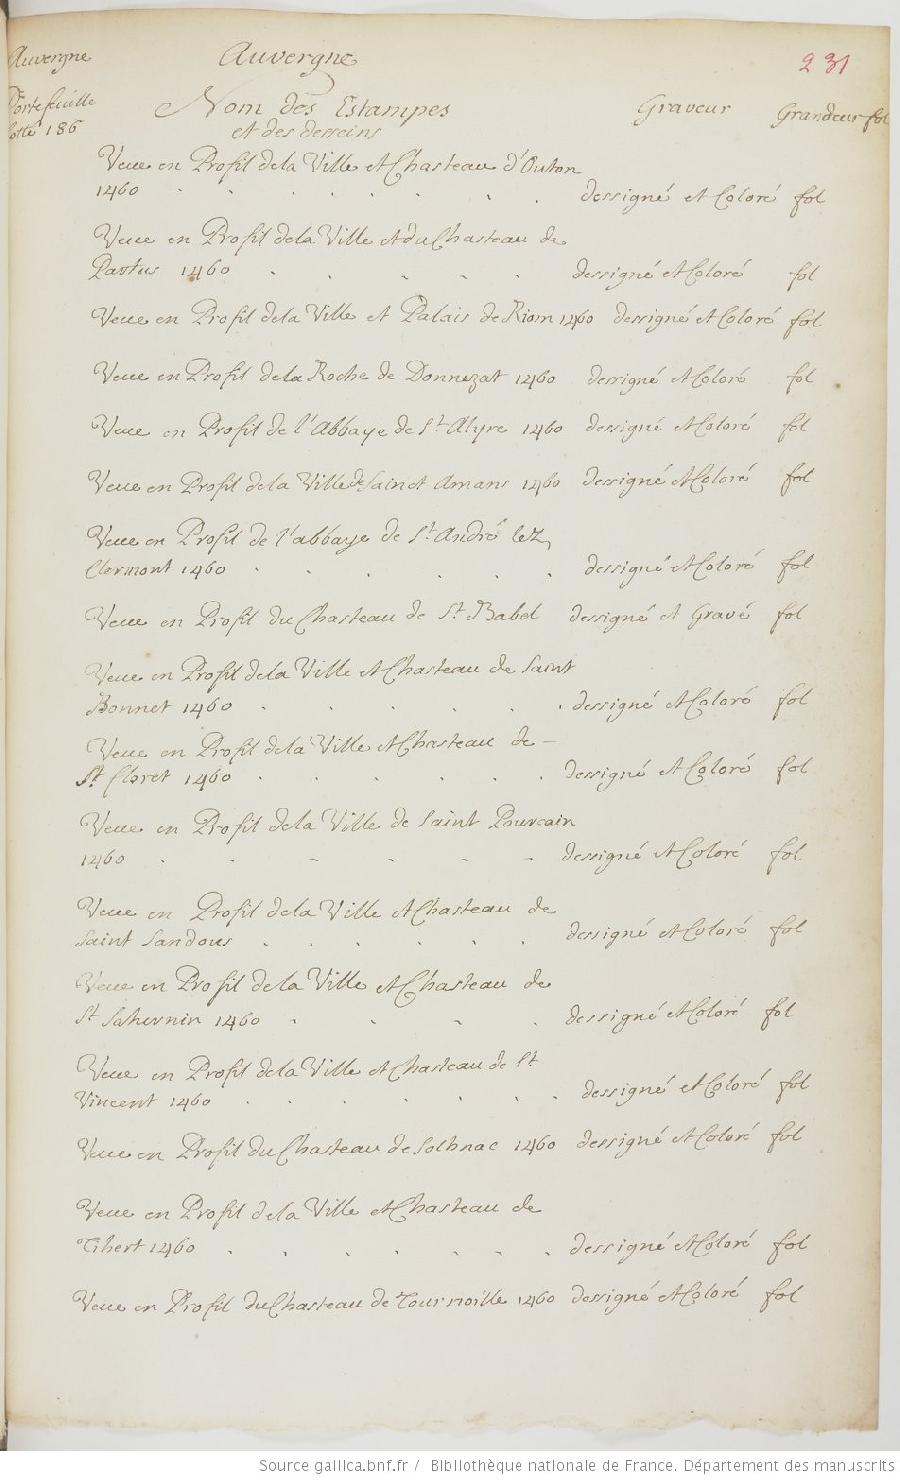 Auvergne
Auvergne
231
Portefeuille
cotté 186
Nom des Estampes
et des desseins
Graveur
Grandeur fol
Veue en Profil de la Ville et Chasteau d'Outon
1460 dessigné et Coloré fol
Veue en Profil de la Ville et du Chasteau de
1460 dessigné et Coloré fol
Veue en Profil de la Ville et Palais de Riom 1460 dessigné et Coloré fol
Veue en Profil de la Roche de Donnezat 1460 dessigné et Coloré fol
Veue en Profil de l'Abbaye de St Alyre 1460 dessigné et Coloré fol
Veue en Profil de la Ville de Sainct Amans 1460 dessigné et Coloré fol
Veue en Profil de l'abbaye de St André lez
Clermont 1460 dessigné et Coloré fol
Veue en Profil du Chasteau de St Babel dessigné et Gravé fol
Veue en Profil de la Ville et Chasteau de Saint
Bonnet 1460 dessigné et Coloré fol
Veue en Profil de la Ville et Chasteau de
St Cloret 1460 dessigné et Coloré fol
Veue en Profil de la Ville de Saint Pourcain
1460 dessigné et Coloré fol
Veue en Profil de la Ville et Chasteau de
Saint Sandous dessigné et Coloré fol
Veue en Profil de la Ville et Chasteau de
St 1460 dessigné et Coloré fol
Veue en Profil de la Ville et Chasteau de St
Vincent 1460 dessigné et Coloré fol
Veue en Profil du Chasteau de 1460 dessigné et Coloré fol
Veue en Profil de la Ville et Chasteau de
Tihert 1460 dessigné et Coloré fol
Veue en Profil du Chasteau de Tournoille 1460 dessigné et Coloré fol
Source gallica.bnf.fr / Bibliothèque nationale de France. Département des manuscrits